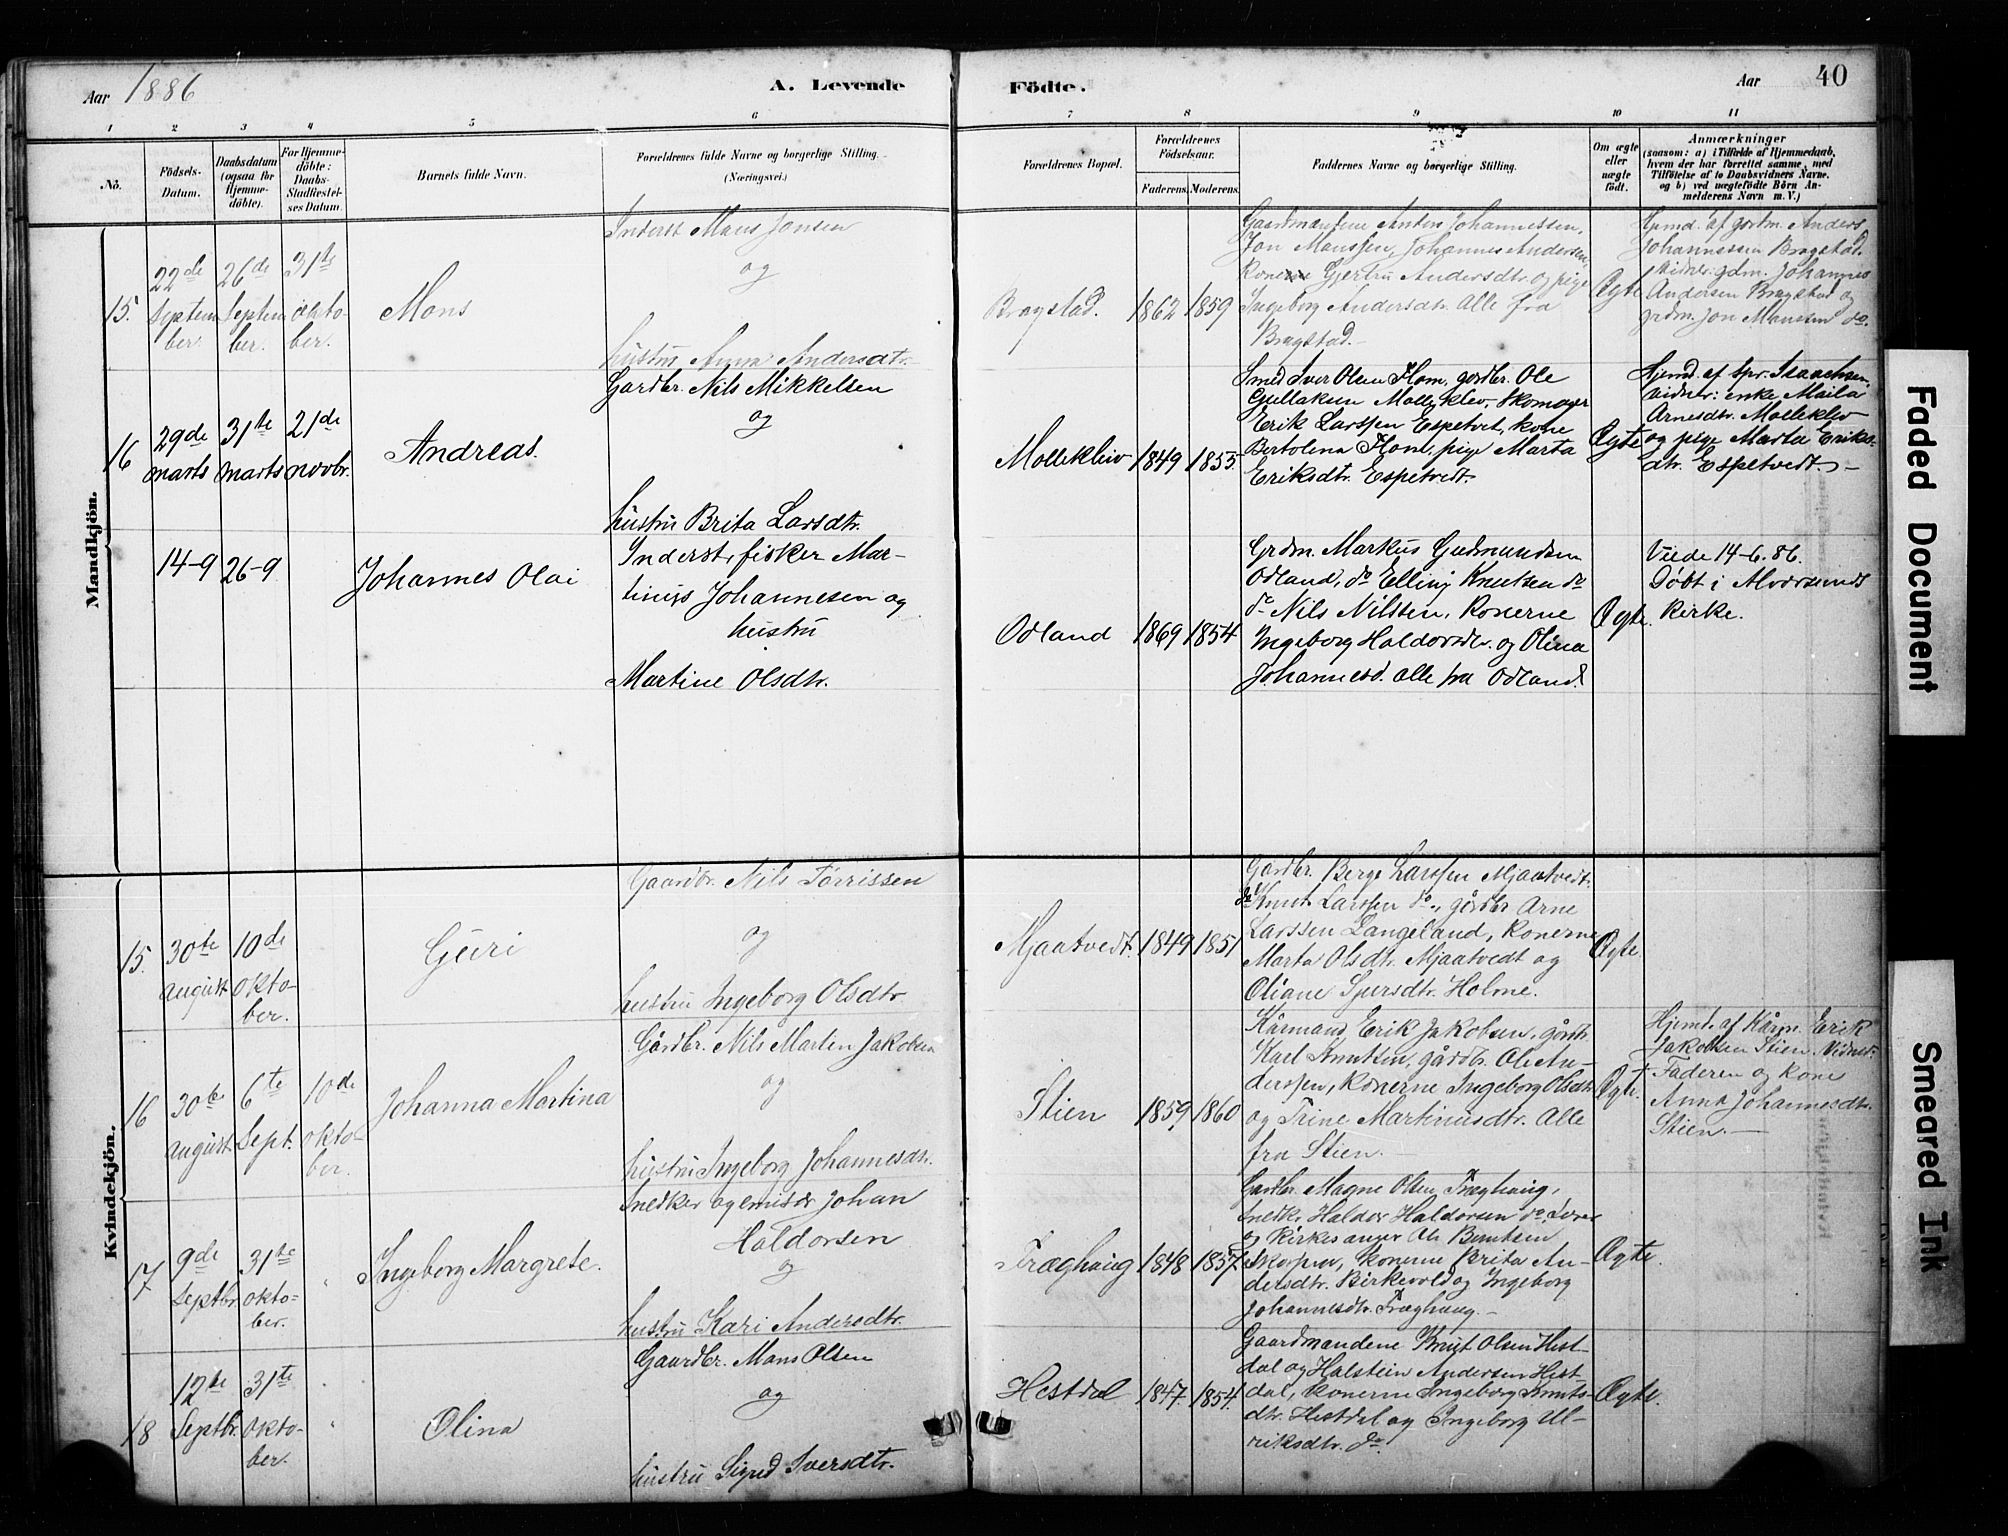 Aar 1886
A. Levende
Födte.
Aar
40
1 2 3 4 5 6 7 8 9 10 11
No.
Födsels-
Datum.
Daabsdatum
(ogsaa for
Hjemme-
döbte).
For Hjemme-
döbte:
Daabs-
Stadfæstel-
ses Datum.
Barnets fulde Navn.
Forældrenes fulde Navne og borgerlige Stilling.
(Næringsvei.)
Forældrenes Bopæl.
Forældrenes
Födselsaar.
Faderens. Moderens.
Faddernes Navne og borgerlige Stilling.
Om ægte
eller
uægte
födt.
Anmærkninger
(saasom: a) i Tilfælde af Hjemmedaab,
hvem der har forrettet samme, med
Tilföielse af to Daabsvidners Navne.
og b) ved uægtefödte Börn An-
melderens Navn m. V.)
Mandkjön.
15.
22de
Septem
ber.
26de
Septem
ber.
31te
okto-
ber.
Mons
Inderst Mans Jonsen
og
hustru Anna Andersdtr.
Bragstad.
1862
1859
Gaardmændene Anders Johannessen,
Jon Manssen, Johannes Andersen,
Konerne Gjertru Andersdtr. og pige
Ingeborg Andersdtr. Alle fra
Bragstad.
Ægte
Hjmd. af gardm. Anders
Johannessen Bragstad.
Vidner: gdm. Johannes
Andersen Bragstad og
grdm. Jon Manssen do.
16
29de
marts
31te
marts
21de
novbr.
Andreas.
Gardbr. Nils Mikkelsen
og
hustru Brita Larsdtr.
Molleklev
1849
1855
Smed Iver Olsen Hom, gardbr. Ole
Gullaksen Molleklev, Skomager
Erik Larssen Espetvet, kone
Bertolina Hom, pige Marta
Eriksdtr. Espetvedt.
Ægte
Hjemd. af Spr. Isaachsen,
vidner: enke Maila
Arnesdtr. Molleklev
og pige Marta Eriks-
dtr. Espetvedt. –
14-9
26-9
Johannes Olai
Inderst, fisker Mar-
tinus Johannesen og
hustru
Martine Olsdtr.
Odland
1869
1854
Grdm. Markus Gudmundsen
Odland, do Elling Knutsen do
do Nils Nilsen, Konerne
Ingeborg Haldorsdtr. og Olina
Johannesd. alle fra Odland.
Ægte.
Viede 14-6. 86.
Døbt i Alversund
Kirke.
Kvindekjön.
15.
30te
August
10de
okto-
ber.
Guri
Gaardbr. Nils Torrissen
og
hustru Ingeborg Olsdtr.
Mjaatvedt.
1849
1851
Gardbr. Berge Larssen Mjaatvedt,
do Knut Larssen do., gårdbr Arne
Larssen Langeland, konerne
Marta Olsdtr. Mjaatvedt og
Oliane Sjursdtr. Holme.
Ægte.
16
30te
August.
6te
Sept.
10de
okto-
ber.
Johanna Martina
Gårdbr. Nils Martin Jakobsen
og
hustru Ingeborg Johannesdtr.
Stien
1859
1860
Kårmand Erik Jakobsen, gårdbr.
Knutsen, gårdbr. Ole An-
derssen, konerne Ingeborg Olsdtr.
og Trine Martinusdtr. Alle
fra Stien.
Ægte.
Hjemd. af Kårm. Erik
Jakobsen Stien. Vidner:
Faderen og kone
Anna Johannesdtr.
Stien. –
17
9de
Septbr.
31te
okto-
ber.
"
Ingeborg Margrete.
Snedker og emisær Johan
Haldorsen
og
hustru Kari Andersdtr.
Træghaug
1848
1857
Gardbr. Magne Olsen Træghaug,
snedkr. Haldor Haldorsen do, Lærer
og Kirkesanger Ole Berntsen
konerne Brita An-
dersdtr. Birkevold og Ingeborg
Johannesdtr. Træghaug. –
Ægte.
18
12te
Septbr.
31te
okto-
ber.
"
Olina
Gaardbr. Mons Olsen
og
hustru Sigrid Iversdtr.
Hestdal
1847.
1854.
Gaardmændene Knut Olsen Hest-
dal og Halstein Andersen Hest-
dal, konerne Ingeborg Knuts-
dtr. Hestdal og Ingeborg Ul-
riksdtr. do.
Ægte.
Faded Document
Smeared Ink